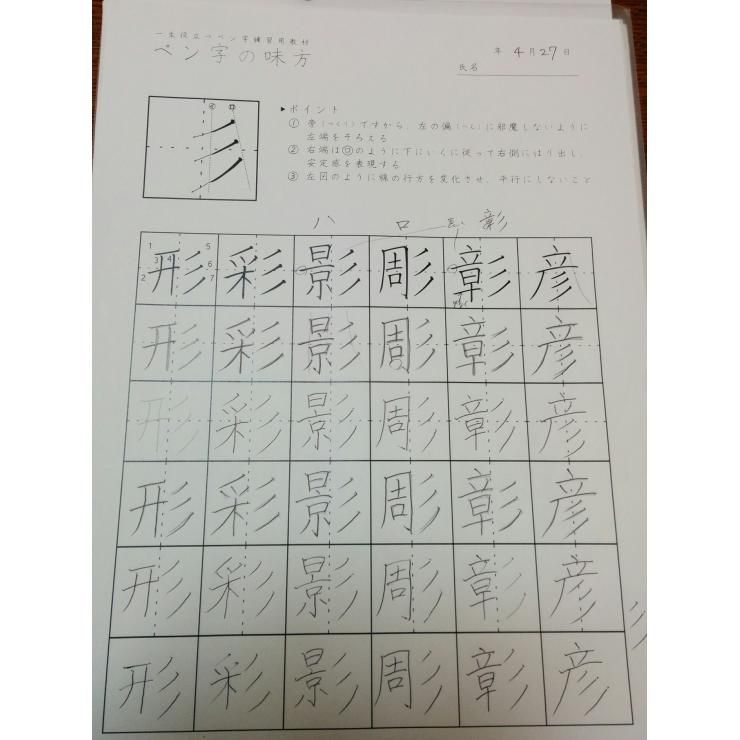 一生役立つペン字練習用教材
ペン字の味方
年 4月27日
氏名
㋑ ㋺
▶ポイント
① 旁(つくり)ですから、左の偏(へん)に邪魔しないように
左端をそろえる
② 右端は㋺のように下にいくに従って右側にはり出し、
安定感を表現する
③ 左図のように線の行方を変化させ、平行にしないこと
ハ ロ 彰
形 彩 影 彫 彰 彦
1 2 3 4 5 6 7
形 彩 影 彫 彰 彦
形 彩 影 彫 彰 彦
形 彩 影 彫 彰 彦
形 彩 影 彫 彰 彦
彡
形 彩 影 彫 彰 彦